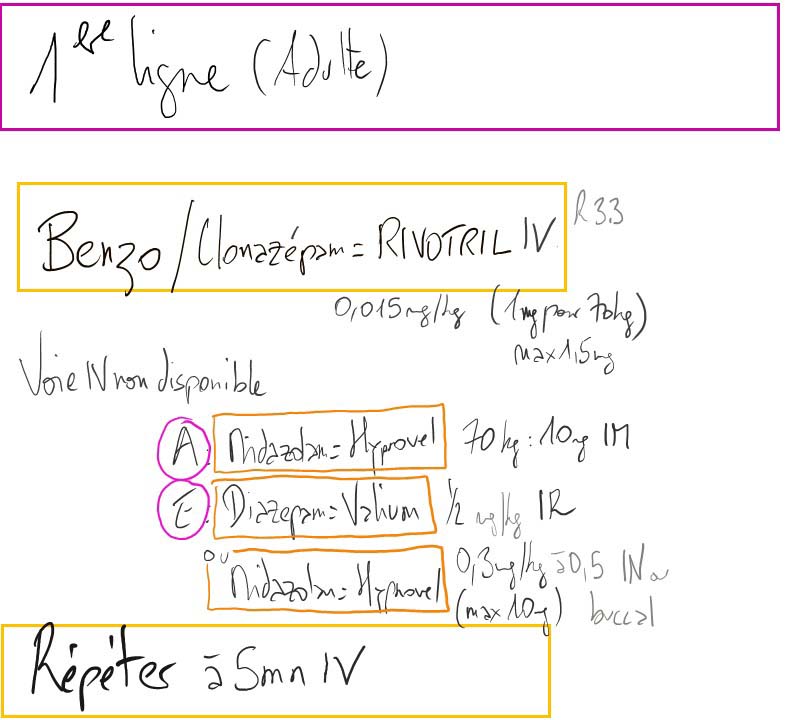 1ere ligne (Adulte)
Benzo/Clonazépam = RIVOTRIL IV
R33
0,015mg/kg (1mg pour 70kg)
max 1,5mg
Voie IV non disponible
A: Midazolam = Hypnovel 70 kg: 10mg IM
E: Diazepam = Valium 1/2 mg/kg IR
ou Midazolam = Hypnovel 0,3mg/kg à 0,5 IN ou
(max 10mg) buccal
Répéter à 5mn IV